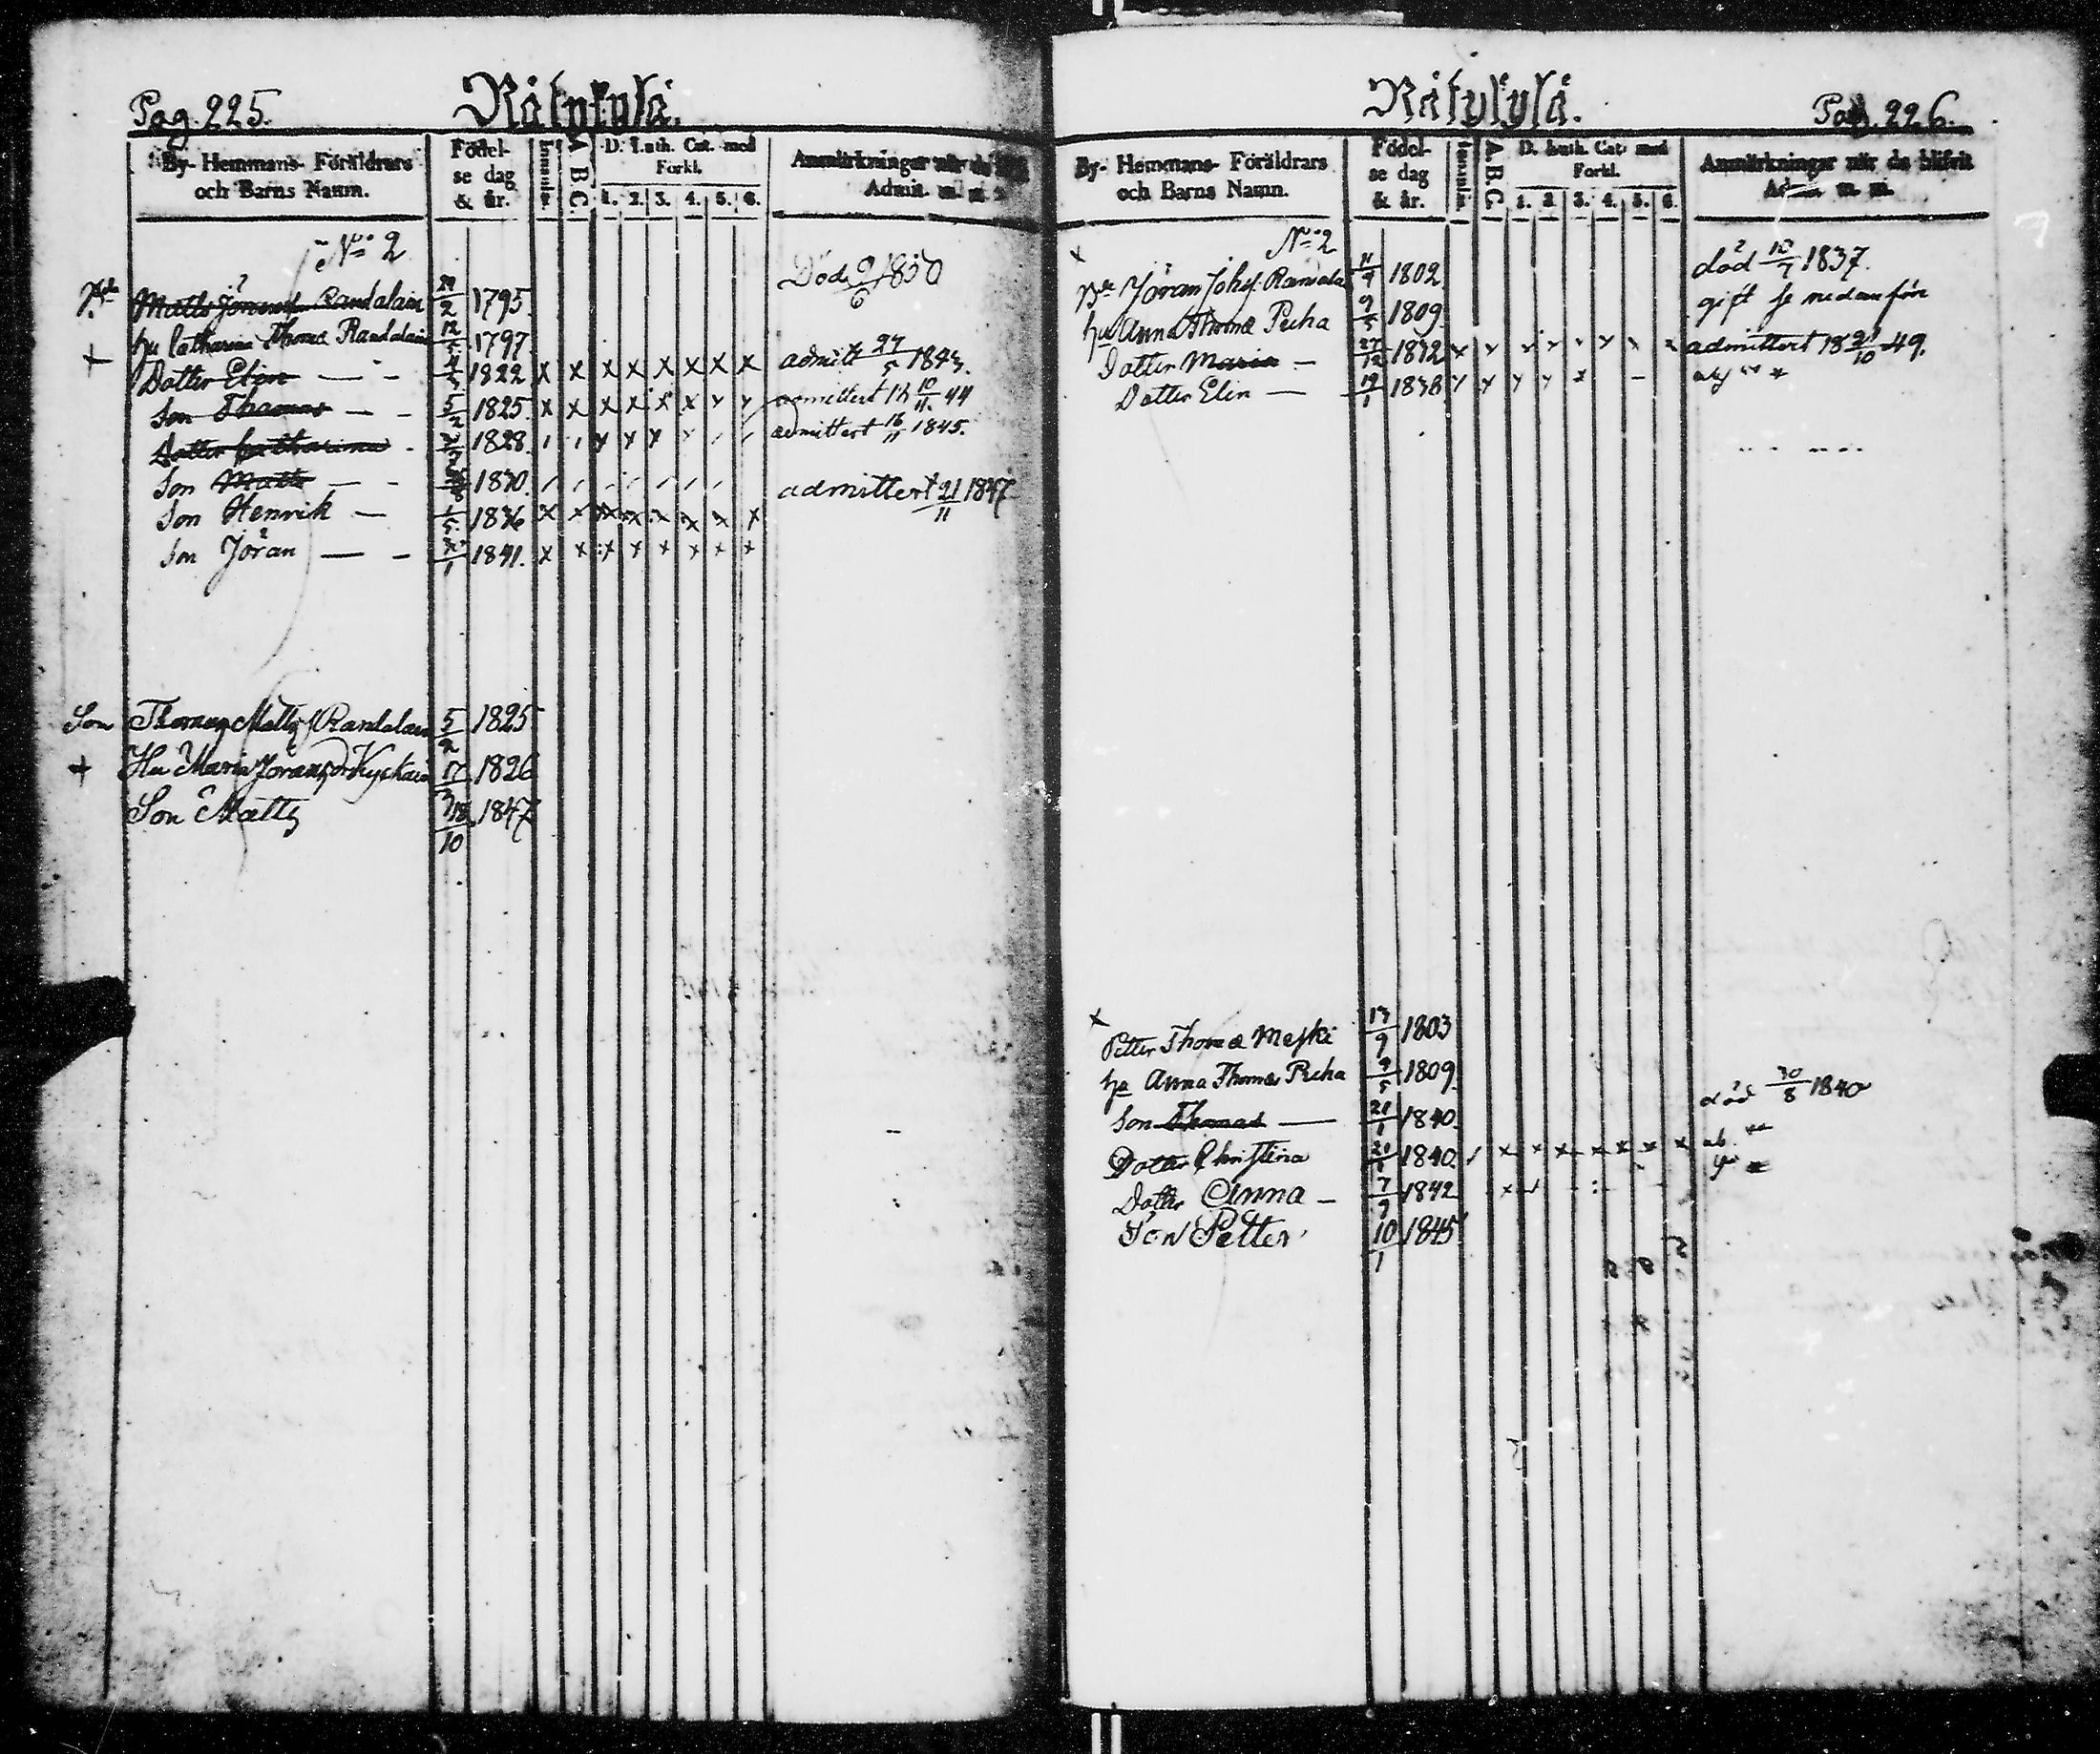 Pag. 225.
Rätykylä.
By- Hemmans- Föräldrars
och Barns Namn.
Födel-
se dag
& år.
A B C.
D. Luth. Cat. med
Förkl.
1. 2. 3. 4. 5. 6.
Anmärkningar när de
Admit. m. m.
No 2
Matts Jöransson Randalain 2 1795 Död 9/6 1850
hu Catharina Thoma Randalain 12/5 1797
Dotter Elin — - 1822 x x x x x x x x admitt 27/5 1843.
Son Thomas — - 5/2 1825. x x x x x x admittert 18 10/11 44
Dotter Catharina - 1828 admittert 16/11 1845.
Son Matts — - 1830. admittert 21/11 1847
Son Henrik — 1/5 1836 x x x x x x x x
Son Jöran — - 1841. x x x x x x x x
Son Thomas Matts Randalain 5/2 1825
+ Hu Maria Jöransdr Kyckain 1826
Son Matts 18/10 1847
Rätykylä.
Pag. 226.
By- Hemmans- Föräldrars
och Barns Namn.
Födel-
se dag
& år.
A. B. C.
D. Luth. Cat. med
Förkl.
1. 2 3. 4. 5. 6.
Anmärkningar när de blifvit
Adm. m. m.
No 2
Jöran Johss. Randala 11/9 1802 död 10/7 1837.
hu Anna Thoma Pecha 9/5 1809 gift se nedanför
Dotter Maria — 27/12 1832 admittert 18 21/10 49.
Dotter Elin — 19/1 1838
x
Petter Thoma Meski 13/9 1803
hu Anna Thoma Pecha 9/5 1809
Son Thomas — 21/1 1840. död 30/8 1840
Dotter Christina 21/1 1840. x x x x x x x
Dotter Anna - 7/9 1842
Son Petter 10/1 1845